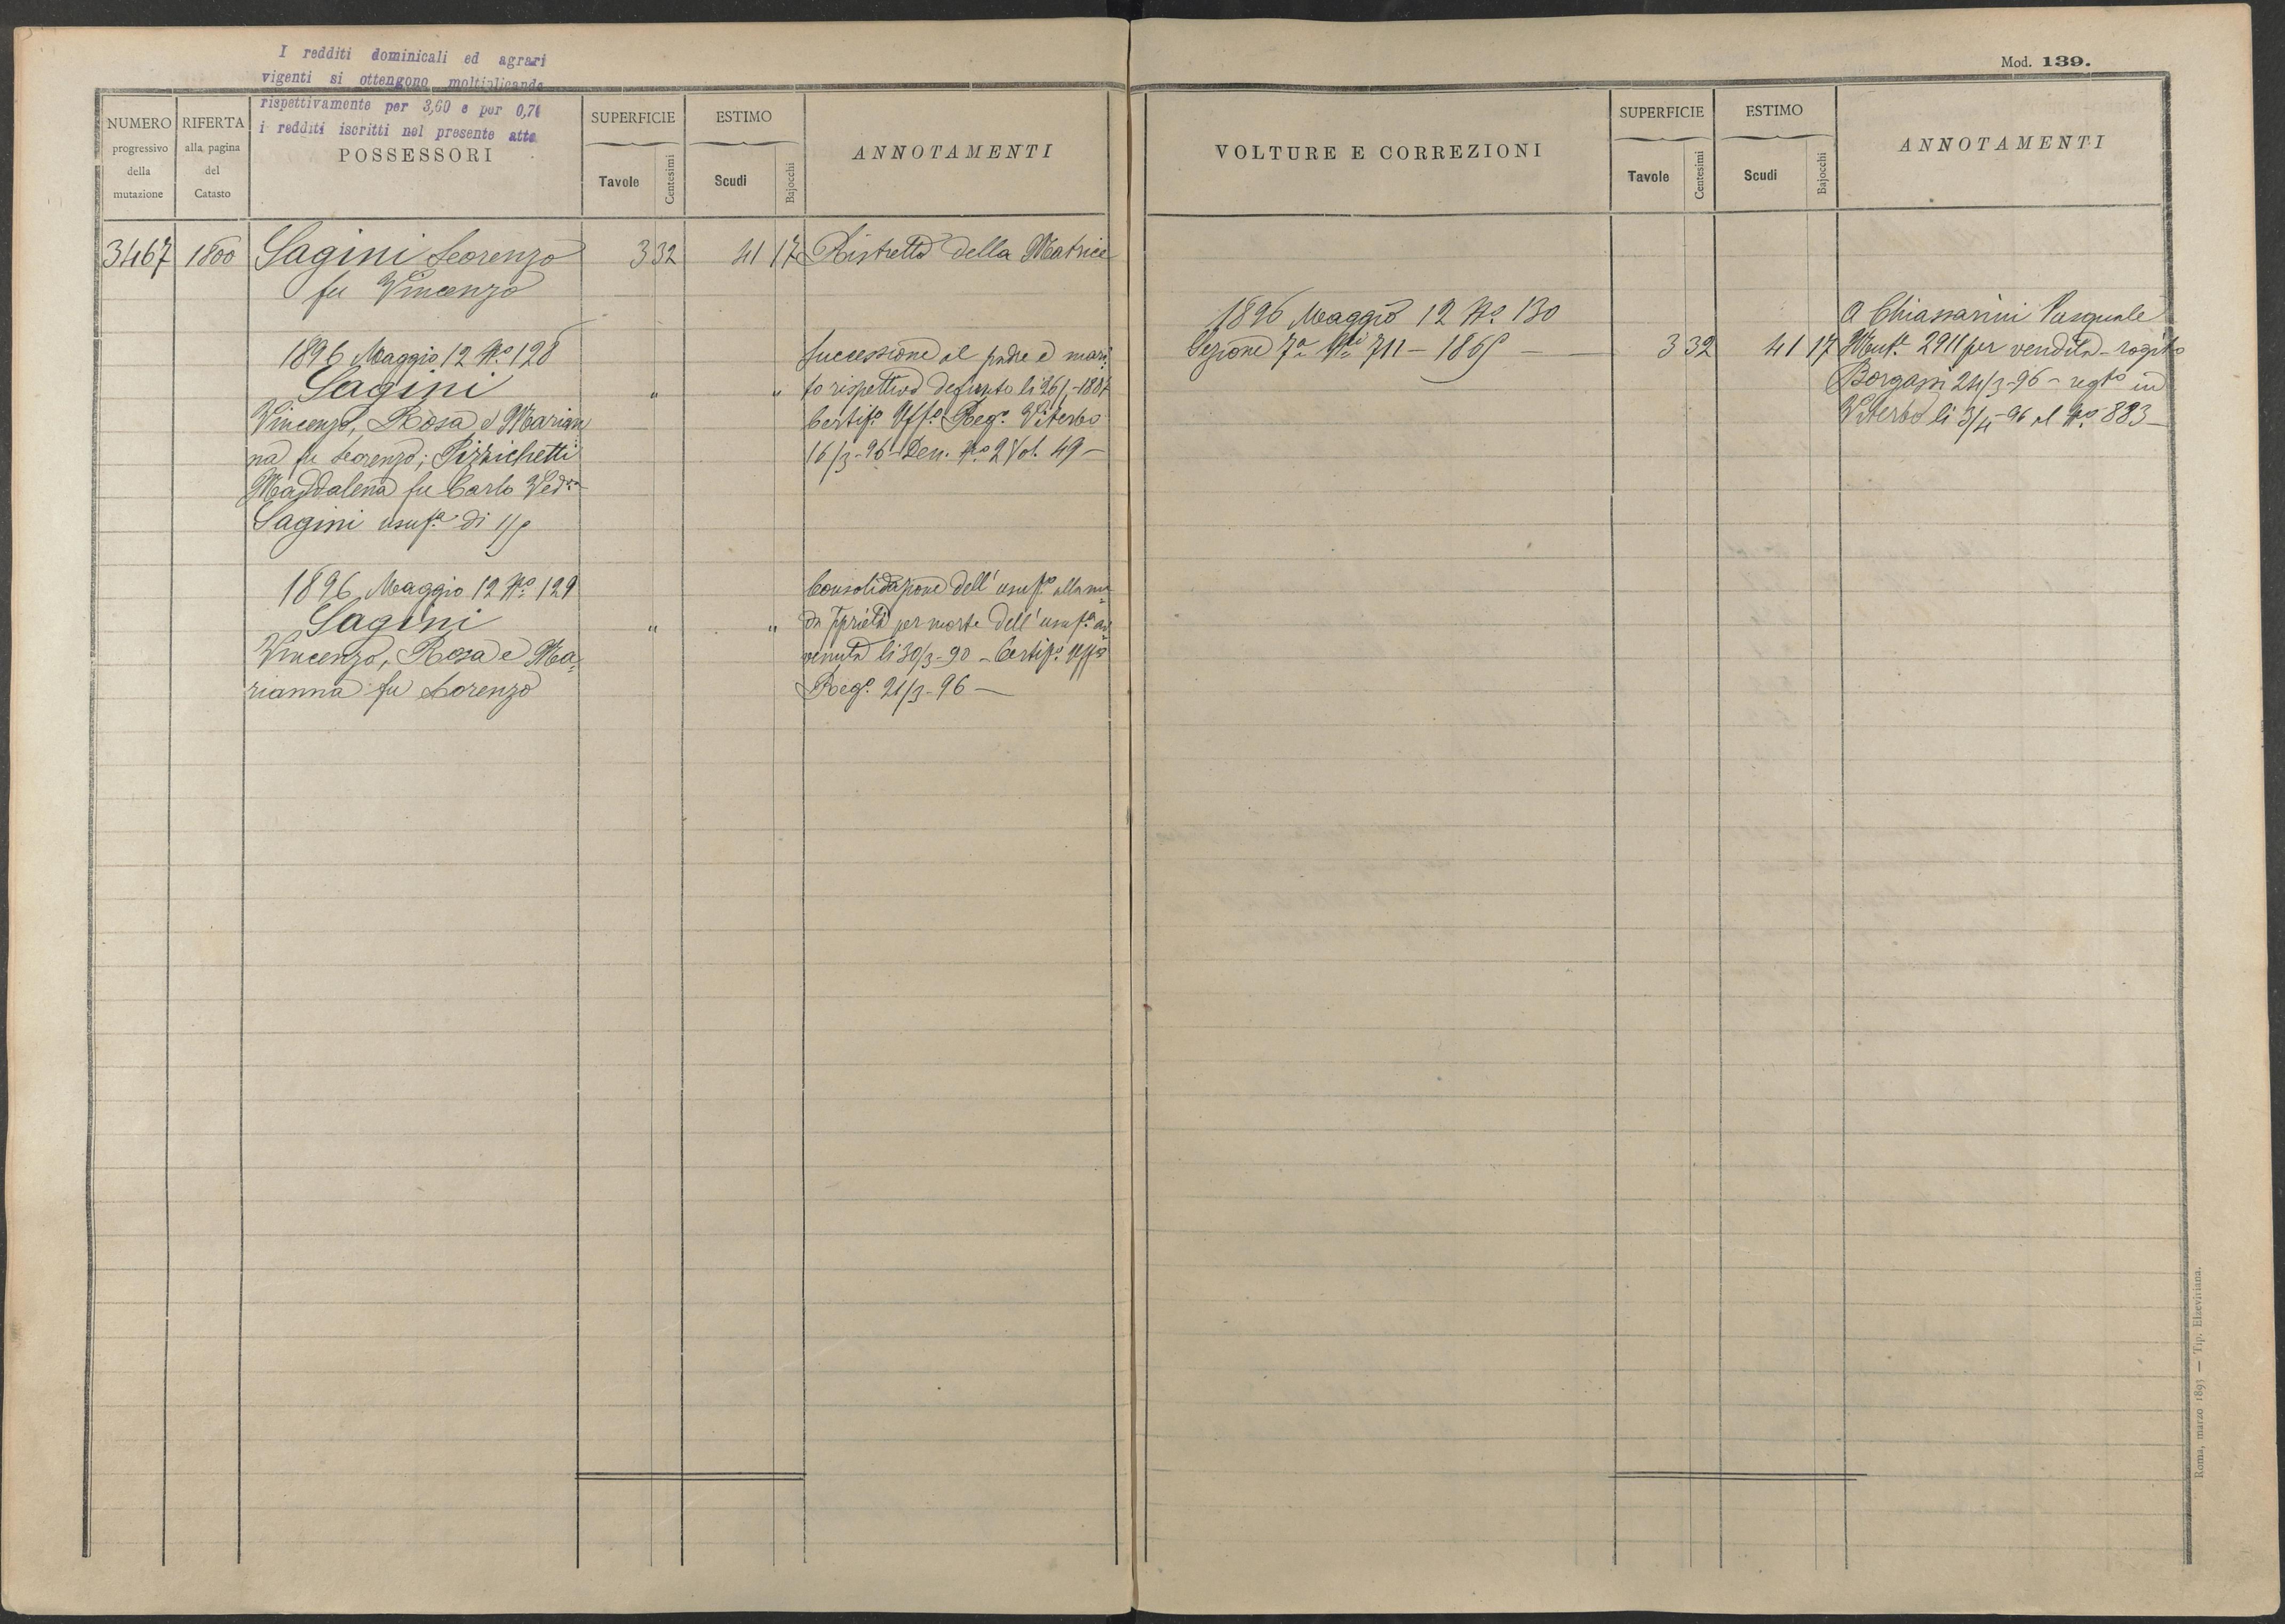 I redditi dominicali ed agrari
vigenti si ottengono moltiplicando
rispettivamente per 3,60 e per 0,74
i redditi iscritti nel presente atto
Mod. 139.
NUMERO progressivo della mutazione
RIFERTA alla pagina del Catasto
POSSESSORI
SUPERFICIE
Tavole Centesimi
ESTIMO
Scudi Bajocchi
ANNOTAMENTI
3467 1800 Sagini Lorenzo 3 32 41 17 Ristretto della Matrice
fu Vincenzo
1896 Maggio 12 No. 128
Sagini " "
Vincenzo, Rosa e Marian
na fu Lorenzo; Pizzichetti
Maddalena fu Carlo Ved.a
Sagini usuf.a di
Successione al padre e mari=
to rispettivo defunto li
Certif.o Uff.o Reg.o Viterbo
16/3-96 - Den. No. 2 Vol. 49 -
1896 Maggio 12 No. 129
Sagini " "
Vincenzo, Rosa e Ma=
rianna fu Lorenzo
Consolidazione dell' usuf.o alla nu=
da pprietà per morte dell' usuf.a av=
venuta li 30/3-90 - Certif.o Uff.o
Reg.o 21/3-96 —
VOLTURE E CORREZIONI
SUPERFICIE
Tavole Centesimi
ESTIMO
Scudi Bajocchi
ANNOTAMENTI
1896 Maggio 12 No. 130
Sezione 7a Ni 711 - 1865 — — 3 32 41 17
A Chiassarini Pasquale
Mut.e 2911 per vendita - rogito
Borgassi 24/3-96 - regto in
Viterbo li 3/4-96 al No. 883 -
Roma, marzo 1895 — Tip. Elzeviriana.